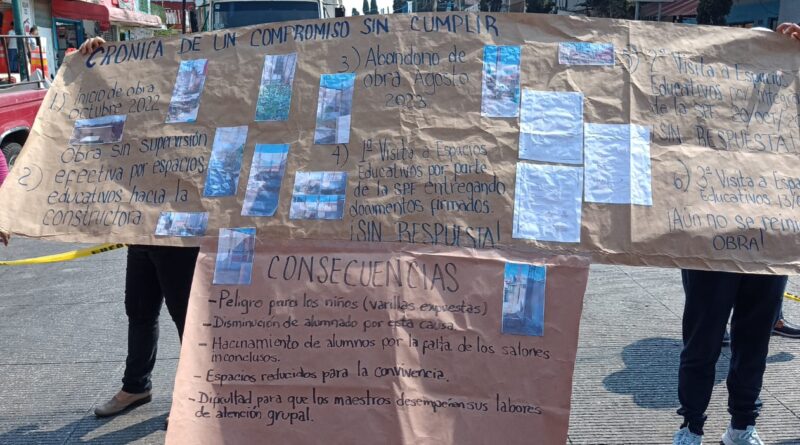 CRÓNICA DE UN COMPROMISO SIN CUMPLIR
1) Inicio de obra
octubre 2022
Obra sin supervisión
2) efectiva por espacios
educativos hacia la
constructora
3) Abandono de
obra Agosto
2023
4) 1ª Visita a Espacios
Educativos por parte
de la SPF entregando
documentos firmados.
¡SIN RESPUESTA!
5) 2ª Visita a Espacios
Educativos por
de la SPF
SIN RESPUESTA!
6) 3ª Visita a Espa
educativos 13/
¡Aún no se rein
OBRA!
CONSECUENCIAS
- Peligro para los niños (varillas expuestas)
- Disminución de alumnado por esta causa
- Hacinamiento de alumnos por la falta de los salones
inconclusos.
- Espacios reducidos para la convivencia.
- Dificultad para que los maestros desempeñen sus labores
de atención grupal.